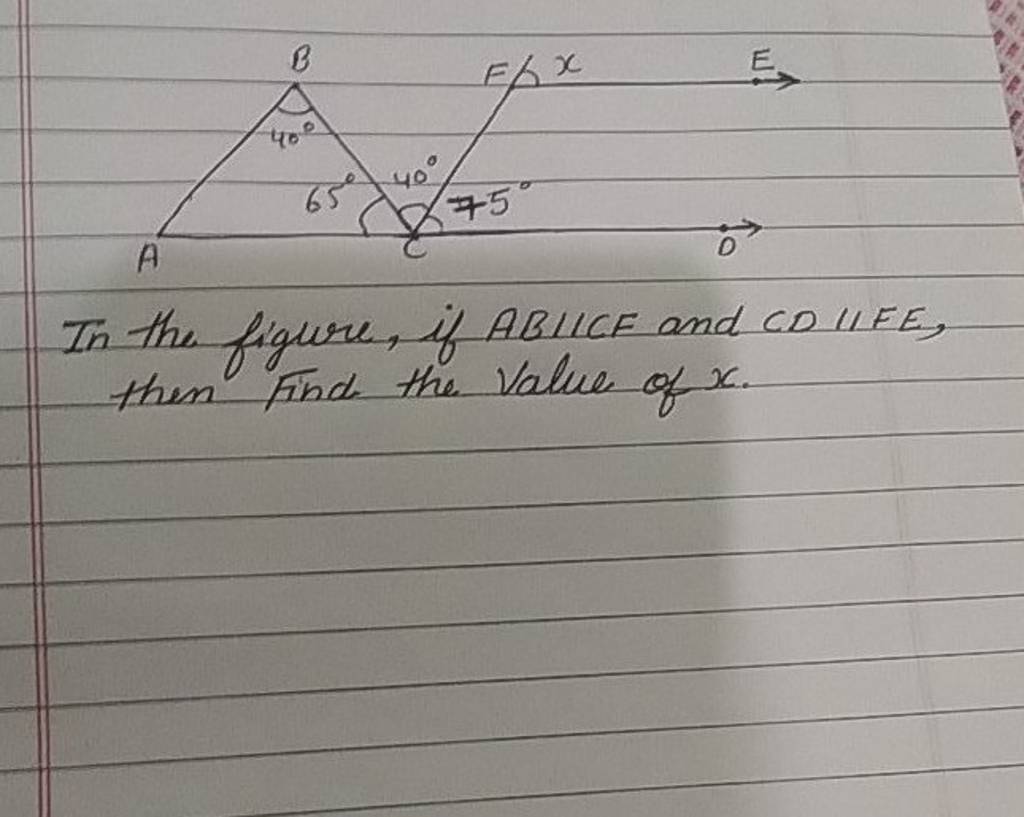 B
F x E
40°
65° 40° 75°
A C D
In the figure, if AB||CF and CD||FE,
then Find the Value of x.